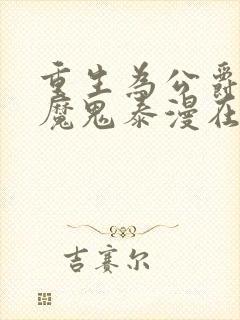 重生为公爵
魔鬼泰漫在
吉赛尔